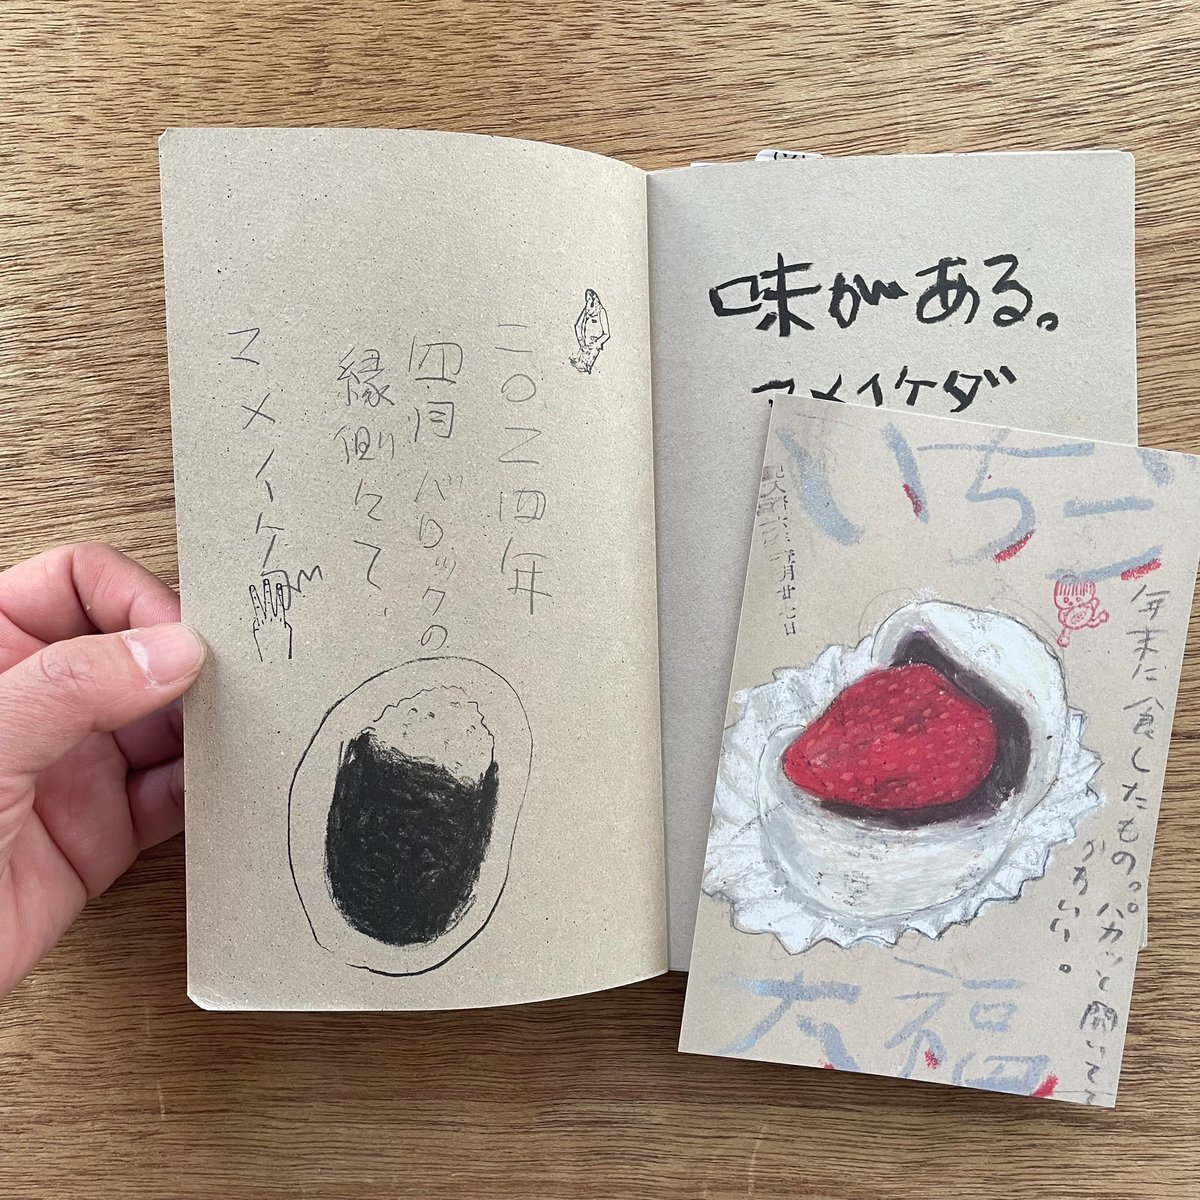 二〇二四年
四月 バロックの
縁側にて、
マメイケ
味がある。
マメイケダ
いちご
年末に食したもの。パカッと開いてて
かわいい。
月廿七日
大福